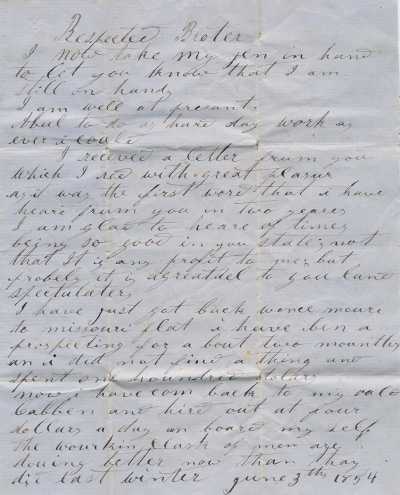 Respected Broter
I now take my pen in hand
to let you know that I am
still on hand,
I am well at presant,
Abul to do as hard day work as
ever i could
I received a letter frum you
which I red with great plasur
as it was the first word that i have
heard frum you in two years
I am glad to heare of times
being so good in you state, not
that It is any profit to me, but
probely it is agreatdel to you land
spectulater,
I have just got back wonce moure
to missouri flat i have ben a
prospecting for a bout two mounths
an i did not find a thing and
spent one houndred dolars
now i have com back to my oald
Cabben and hire out at four
dollars a day an board my self
the wourkin Clask of men are
douing better now than thay
did last winter june 3ths 1854